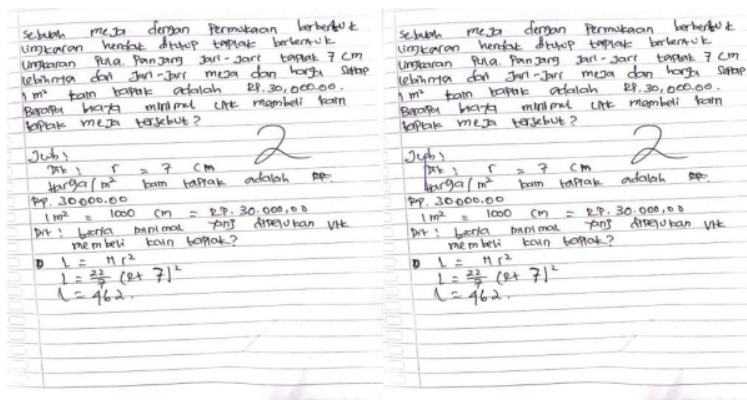 Sebuah meja dengan Permukaan berbentuk
lingkaran hendak ditutup taplak berbentuk
lingkaran Pula. Panjang Jari-Jari taplak 7 cm
lebihnya dari Jari-Jari meja dan harga Setiap
1 m² kain taplak adalah RP. 30,000.00.
Berapa biaya minimal utk membeli kain
taplak meja tersebut?
2
Jwb:
Dik: r = 7 cm
Harga/m² kain taplak adalah RP.
RP. 30000.00
1 m² = 1000 cm = RP. 30.000,00
Dit: biaya minimal yang diperlukan utk
membeli kain taplak?
L = π r²
L = 22/7 (R+ 7)²
L = 462.
Sebuah meja dengan Permukaan berbentuk
lingkaran hendak ditutup taplak berbentuk
lingkaran Pula. Panjang Jari-Jari taplak 7 cm
lebihnya dari Jari-Jari meja dan harga Setiap
1 m² kain taplak adalah RP. 30,000.00.
Berapa biaya minimal utk membeli kain
taplak meja tersebut?
2
Jwb:
Dik: r = 7 cm
Harga/m² kain taplak adalah RP.
RP. 30000.00
1 m² = 1000 cm = RP. 30.000,00
Dit: biaya minimal yang diperlukan utk
membeli kain taplak?
L = π r²
L = 22/7 (R+ 7)²
L = 462.